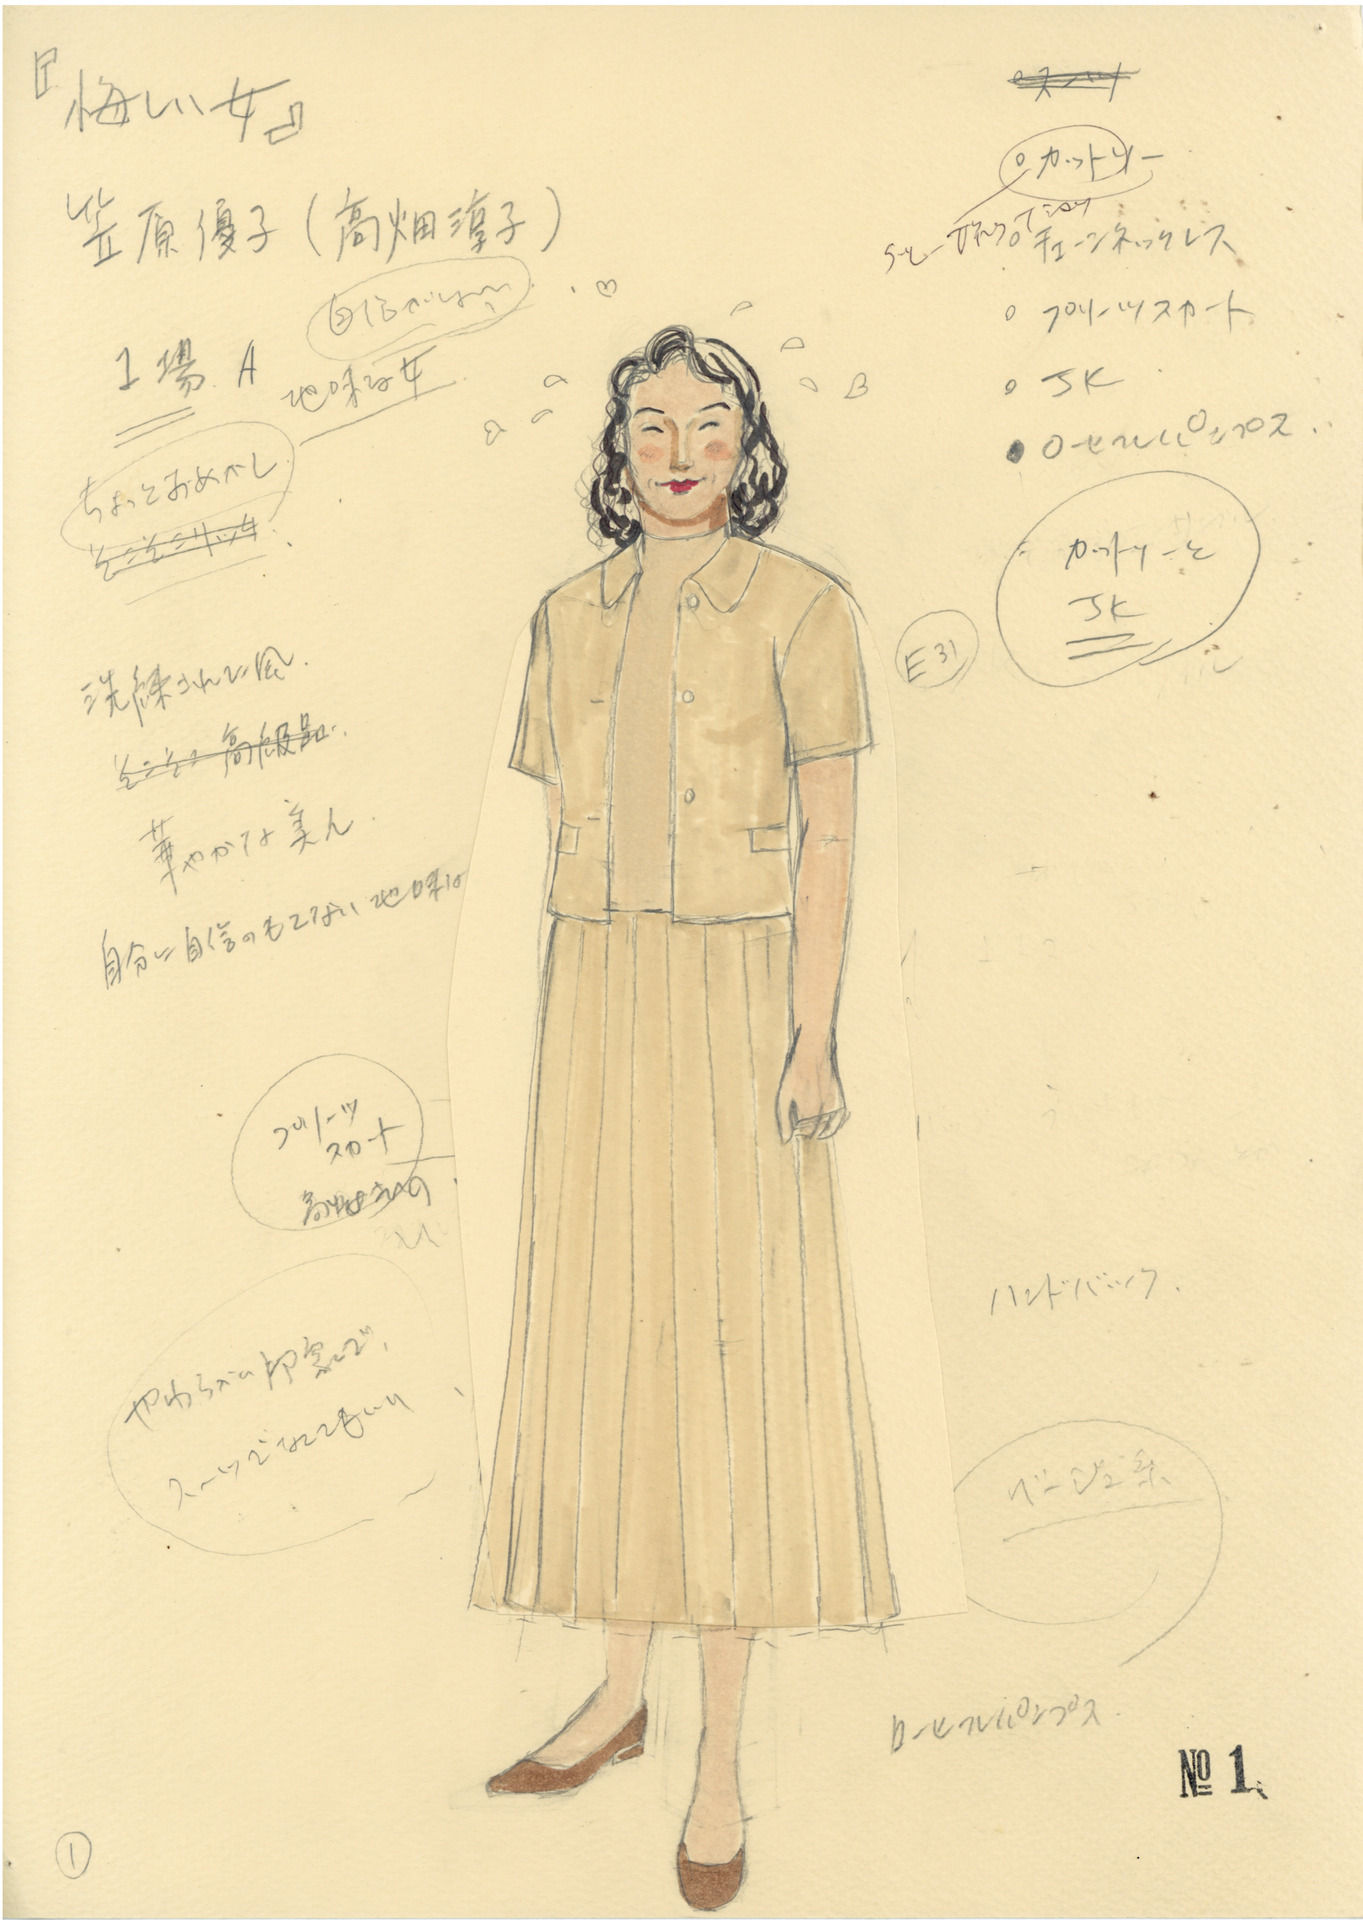 『悔しい女』
笠原優子(高畑淳子)
自信がない
1場 A
地味な女
ちょっとおめかし
そこそこリッチ
洗練されて風
そこそこ高級品
華やかな美人
自分に自信のもてない地味な
プリーツ
スカート
やわらかい印象で、
スーツでなくてもいい
カットソー
チェーンネックレス
プリーツスカート
JK
ローヒールパンプス
カットソーと
JK
E31
ハンドバック
ベージュ系
ローヒールパンプス
№ 1
1